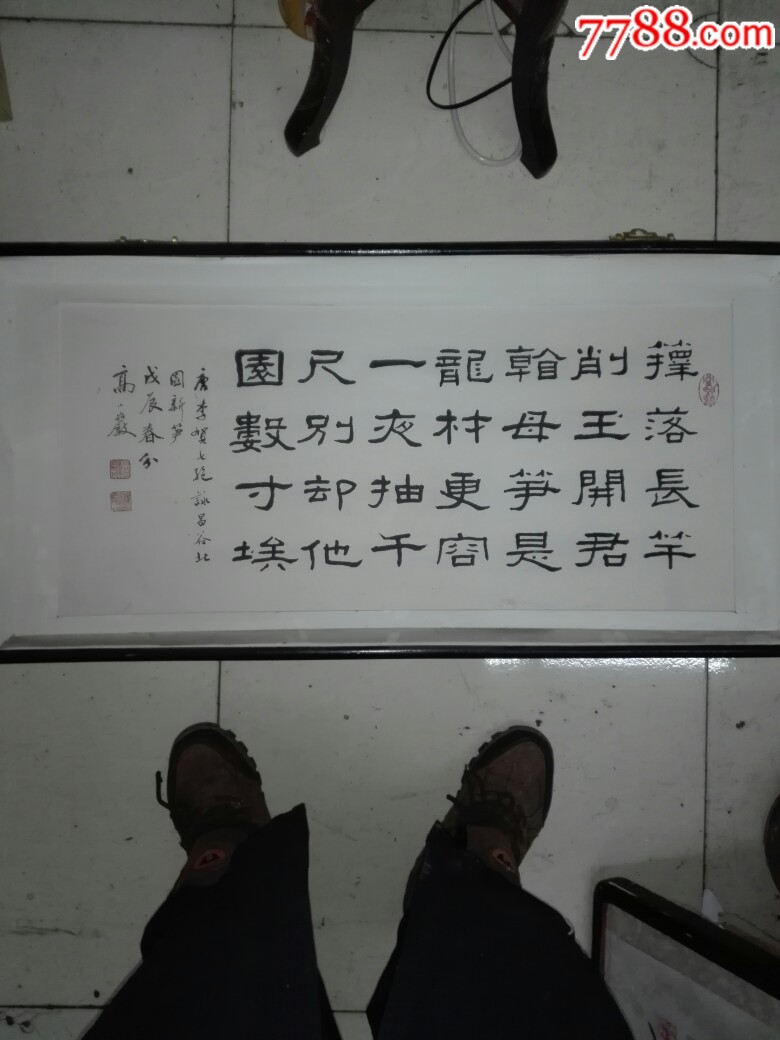 籜落長竿
削玉開君
看母笋是
龍材更容
一夜抽千
尺別却他
園數寸埃
唐李賀七絕詠昌谷北
園新笋
戊辰春分
高小巖
7788.com